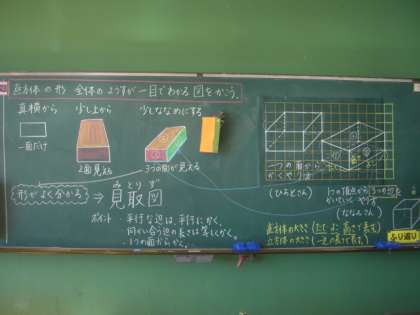 直方体の形 全体のようすが一目でわかる図をかこう。
真横から
少し上から
少しななめにする
一面だけ
2面見える
3つの面が見える
形がよく分かる ⇒ 見取図
みとりず
ポイント ・平行な辺は、平行にかく。
・向かい合う辺の長さは等しくかく。
・1つの面からかく。
一つの面から
かくやり方
(ひろとさん)
1つの頂点から3つの辺を
かいていくやり方
(ななみさん)
直方体の大きさ(たて、よこ、高さで表す)
立方体の大きさ(一辺の長さで表す)
ふり返り